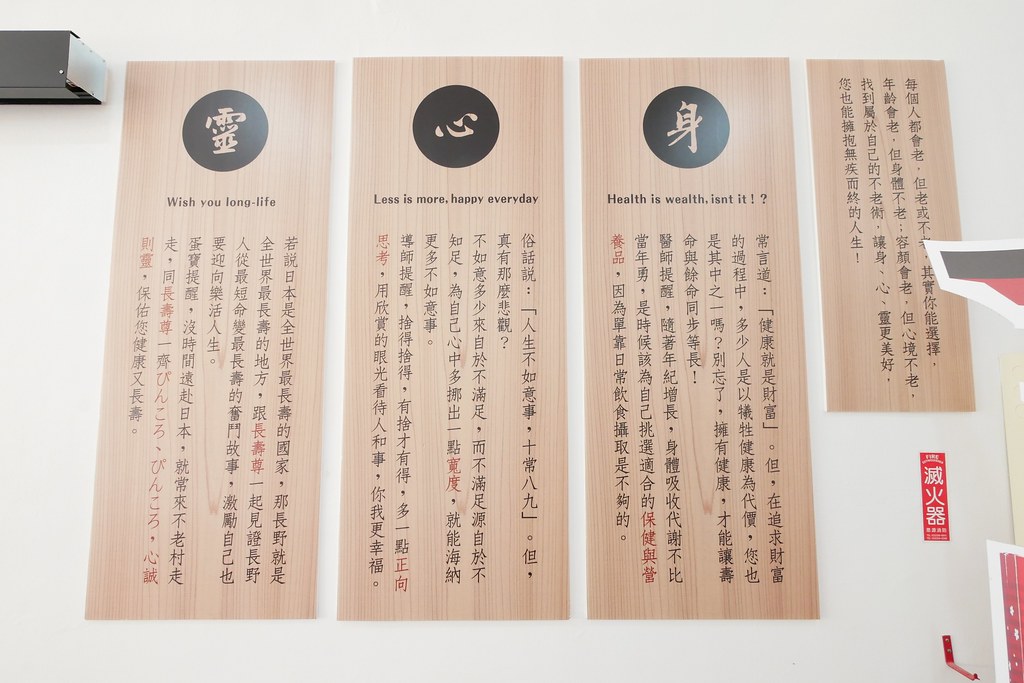 每個人都會老，但老或不老，其實你能選擇，
年齡會老，但身體不老；容顏會老，但心境不老，
找到屬於自己的不老術，讓身、心、靈更美好，
您也能擁抱無疾而終的人生！
身
Health is wealth, isnt it！？
常言道：「健康就是財富」。但，在追求財富
的過程中，多少人是以犧牲健康為代價，您也
是其中之一嗎？別忘了，擁有健康，才能讓壽
命與餘命同步等長！
醫師提醒，隨著年紀增長，身體吸收代謝不比
當年勇，是時候該為自己挑選適合的保健與營
養品，因為單靠日常飲食攝取是不夠的。
心
Less is more, happy everyday
俗話說：「人生不如意事，十常八九」。但，
真有那麼悲觀？
不如意多少來自於不滿足，而不滿足源自於不
知足，為自己心中多挪出一點寬度，就能海納
更多不如意事。
導師提醒，捨得捨得，有捨才有得，多一點正向
思考，用欣賞的眼光看待人和事，你我更幸福。
靈
Wish you long-life
若說日本是全世界最長壽的國家，那長野就是
全世界最長壽的地方，跟長壽尊一起見證長野
人從最短命變最長壽的奮鬥故事，激勵自己也
要迎向樂活人生。
蛋寶提醒，沒時間遠赴日本，就常來不老村走
走，同長壽尊一齊ぴんころ、ぴんころ，心誠
則靈，保佑您健康又長壽。
FIRE
滅火器